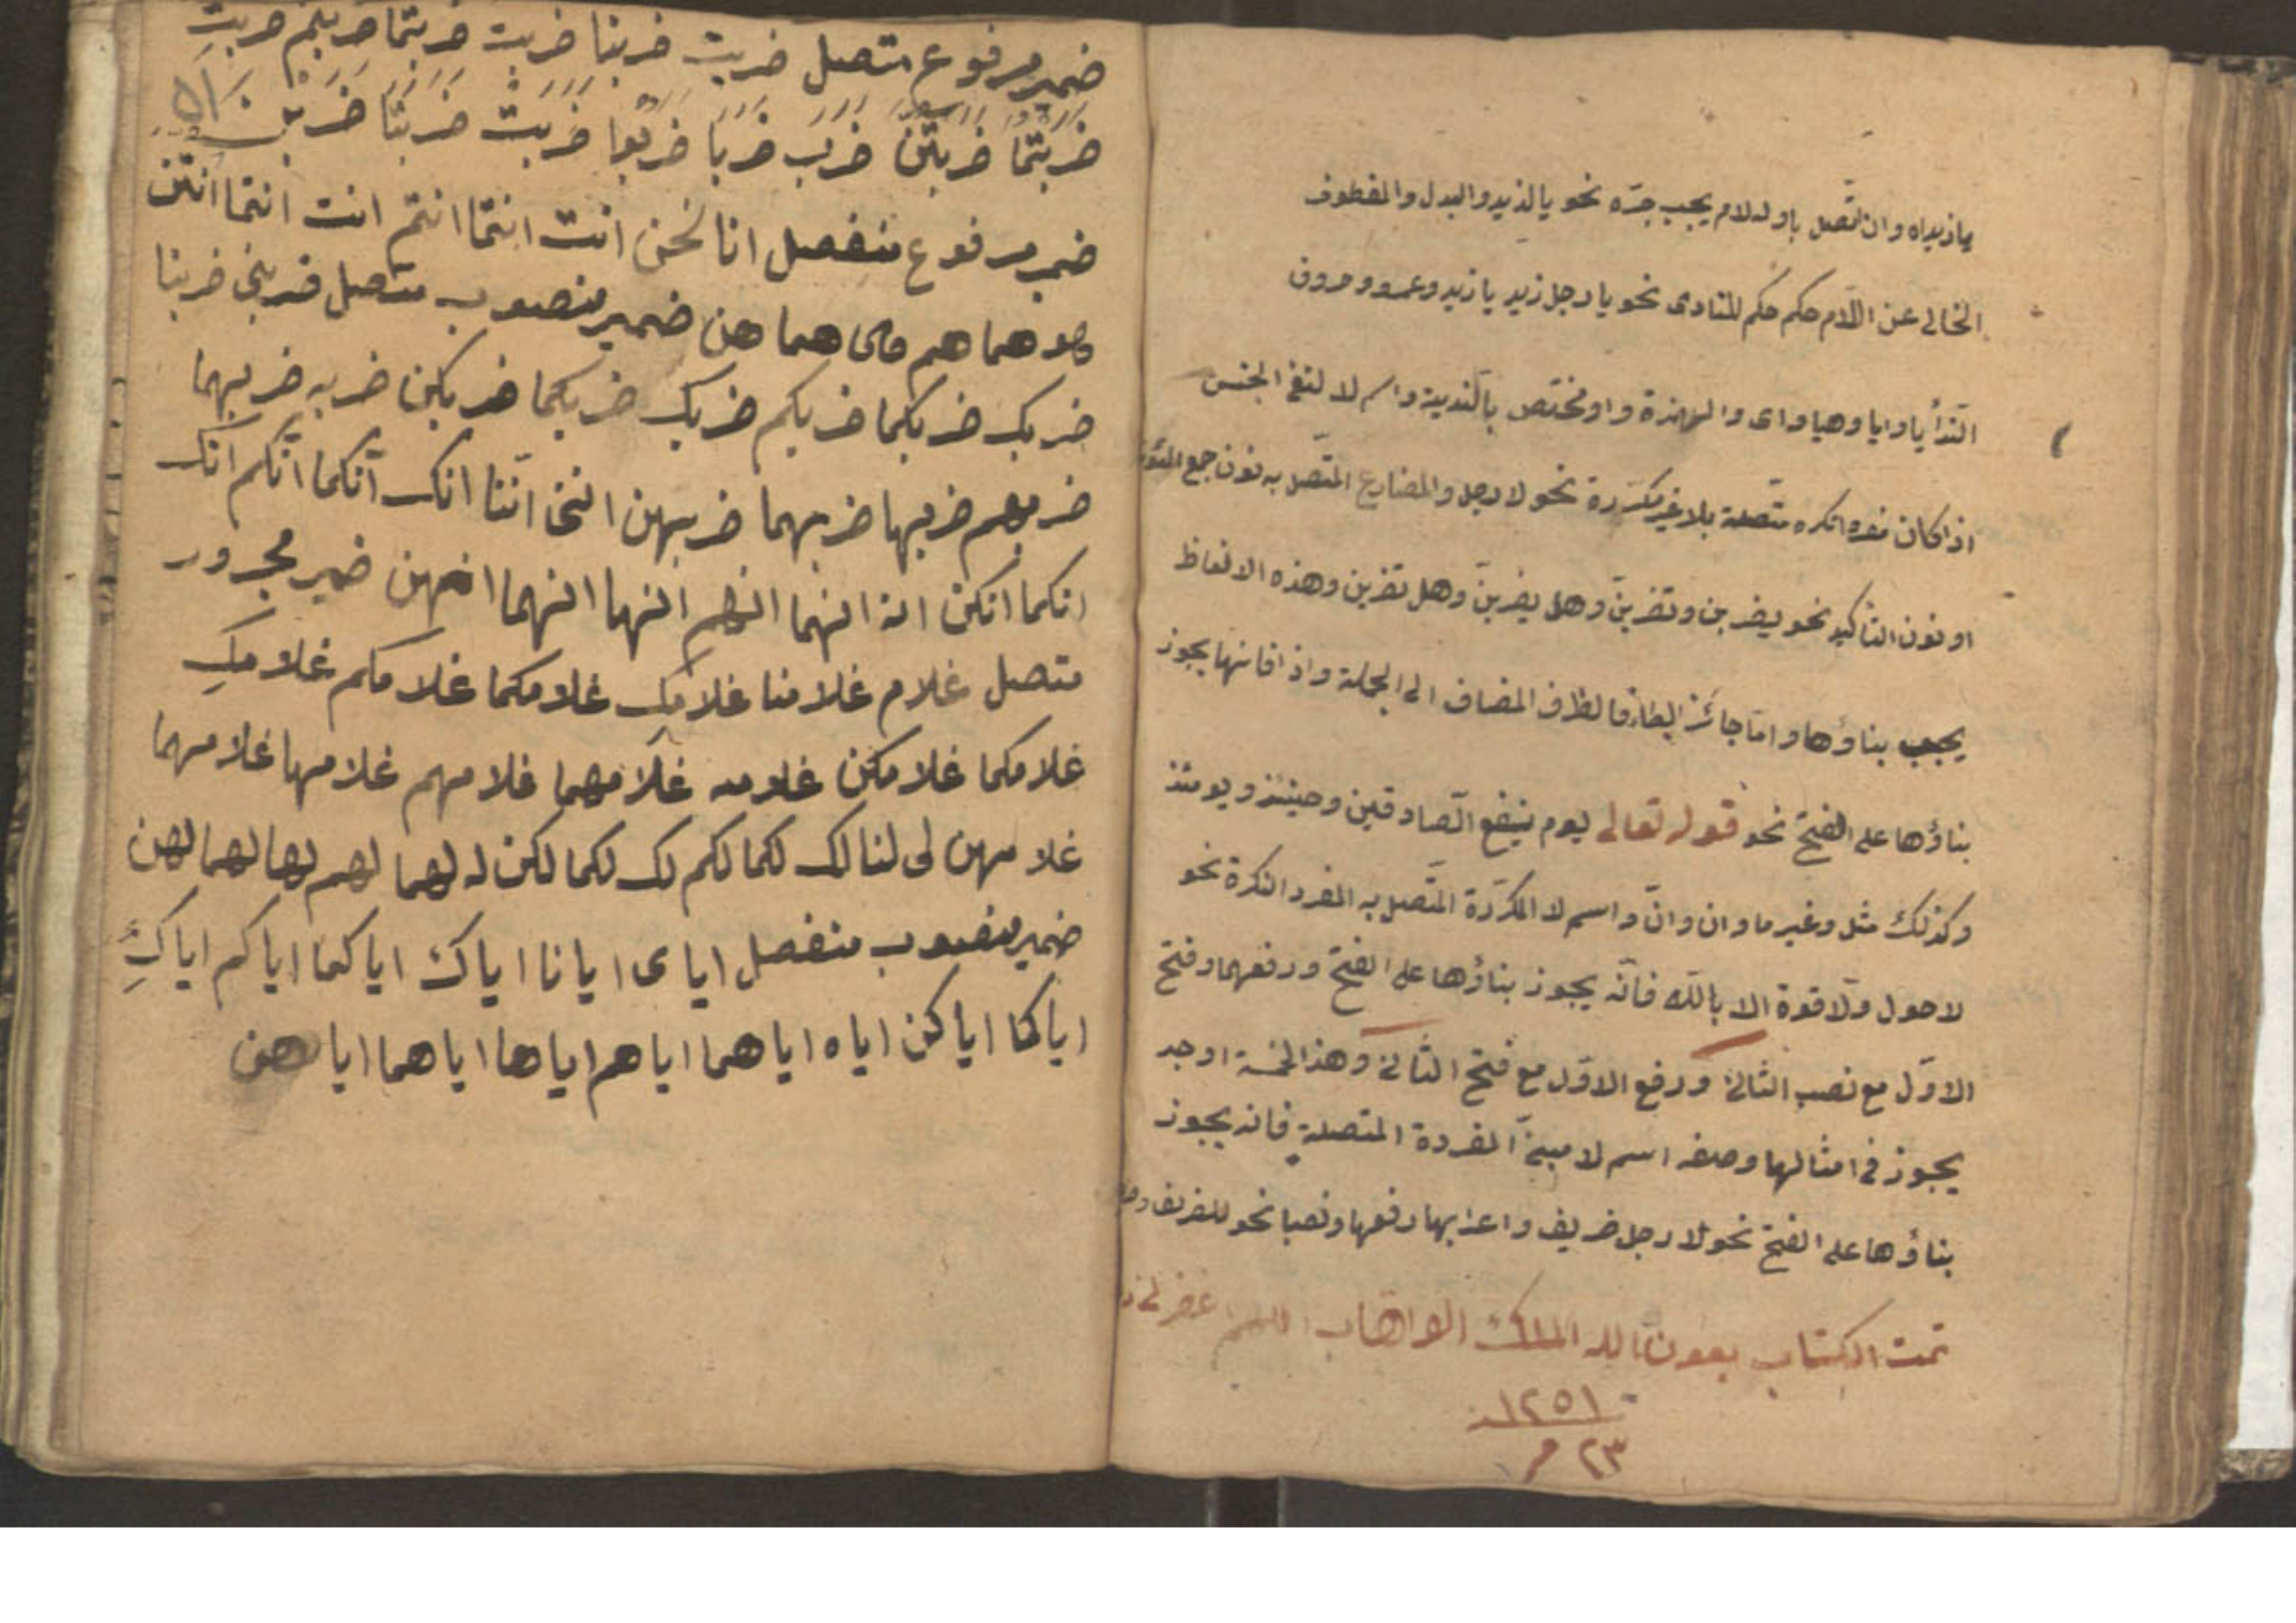 يا زيداه وان اتّصل باوله لام يجب جرّه نحو يا لزيد والبدل والمعطوف
الخالى عن اللّام حكم حكم للمنادى نحو يا رجل زيد يا زيد وعمرو وحروف
النّدأ يا وايا وهيا واى والهمزة واو مختص بالّندبة واسم لا لنفى الجنس
اذا كان نكره متّصلة بلا غير مكرّرة نحو لا رجل والمضارع المتّصل به نون جمع المؤنث
او نون التأكيد نحو يضربن وتضربنّ وهل يضربنّ وهل تضربن وهذه الالفاظ
يجب بناؤها وامّا جائز البناء فالظرف المضاف الى الجملة واذ فانها يجوز
بناؤها على الفتح نحو قوله تعالى يوم ينفع الّصادقين وحينئذ ويومئذ
وكذلك مثل وغير ما وان وانّ واسم لا المكرّرة المتّصل به المفرد النكرة نحو
لا حول ولا قوة الا بالله فانّه يجوز بناؤها على الفتح ورفعهما وفتح
الاوّل مع نصب الثانى ورفع الاوّل مع فتح الثانى وهذا الخمسة اوجه
يجوز فى امثالها وصفه اسم لا مبنىّ المفردة المتصلة فانه يجوز
بناؤها على الفتح نحو لا رجل ضريف واعرابها رفعها ونصبا نحو
تمت الكتاب بعون الله الملك الواهاب اللهم غفر لى
١٢٥١
٢٣ م
ضمير مرفوع متصل ضربت ضربنا ضربت ضربتما ضربتم ضربتِ
ضَرَبْتُمَا ضَرَبْتُنَّ ضَرَبَ ضَرَبَا ضَرَبُوا ضَرَبَتْ ضَرَبَتَا ضَرَبْنَ
ضمير مرفوع منفصل انا نحن انت انتما انتم انت انتما انتن
وهو هما هم وهى هما هن ضمير منصوب متصل ضربنى ضربنا
ضربك ضربكما ضربكم ضربك ضربكما ضربكن ضربه ضربهما
ضربهم ضربها ضربهما ضربهن اننى انّنا انك انّكما انّكم انّك
انكما انكن انه انهما انهم انها انهما انهن ضمير مجرور
متصل غلام غلامنا غلامك غلامكما غلامكم غلامكِ
غلامكما غلامكن غلامه غلامهما غلامهم غلامها غلامهما
غلامهن لى لنا لك لكما لكم لك لكما لكن له لهما لهم لها لهما لهن
ضمير منصوب منفصل اياى ايانا اياك اياكما اياكم اياكِ
اياكما اياكن اياه اياهما اياهم اياها اياهما اياهن